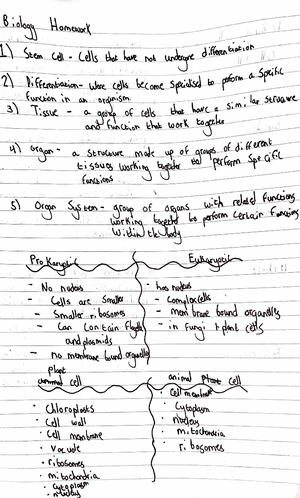 Biology Homework
1) Stem cell - Cells that have not undergone differentiation
2) Differentiation - where cells become specialised to perform a specific
function in an organism
3) Tissue - a group of cells that have a similar structure
and function that work together
4) organ - a structure made up of groups of different
tissues working together to perform specific
functions
5) Organ System - group of organs with related functions
working together to perform certain functions
within the body
Prokaryotic
Eukaryotic
- No nucleus
- Cells are smaller
- Smaller ribosomes
- Can contain flagella
and plasmids
- no membrane bound organelles
- has nucleus
- complex cells
- membrane bound organelles
- in fungi + plant cells
plant
animal cell
animal plant cell
· Chloroplasts
· Cell wall
· Cell membrane
· vacuole
· ribosomes
· mitochondria
· cytoplasm
· nucleus
· Cell membrane
· Cytoplasm
· nucleus
· mitochondria
· ribosomes